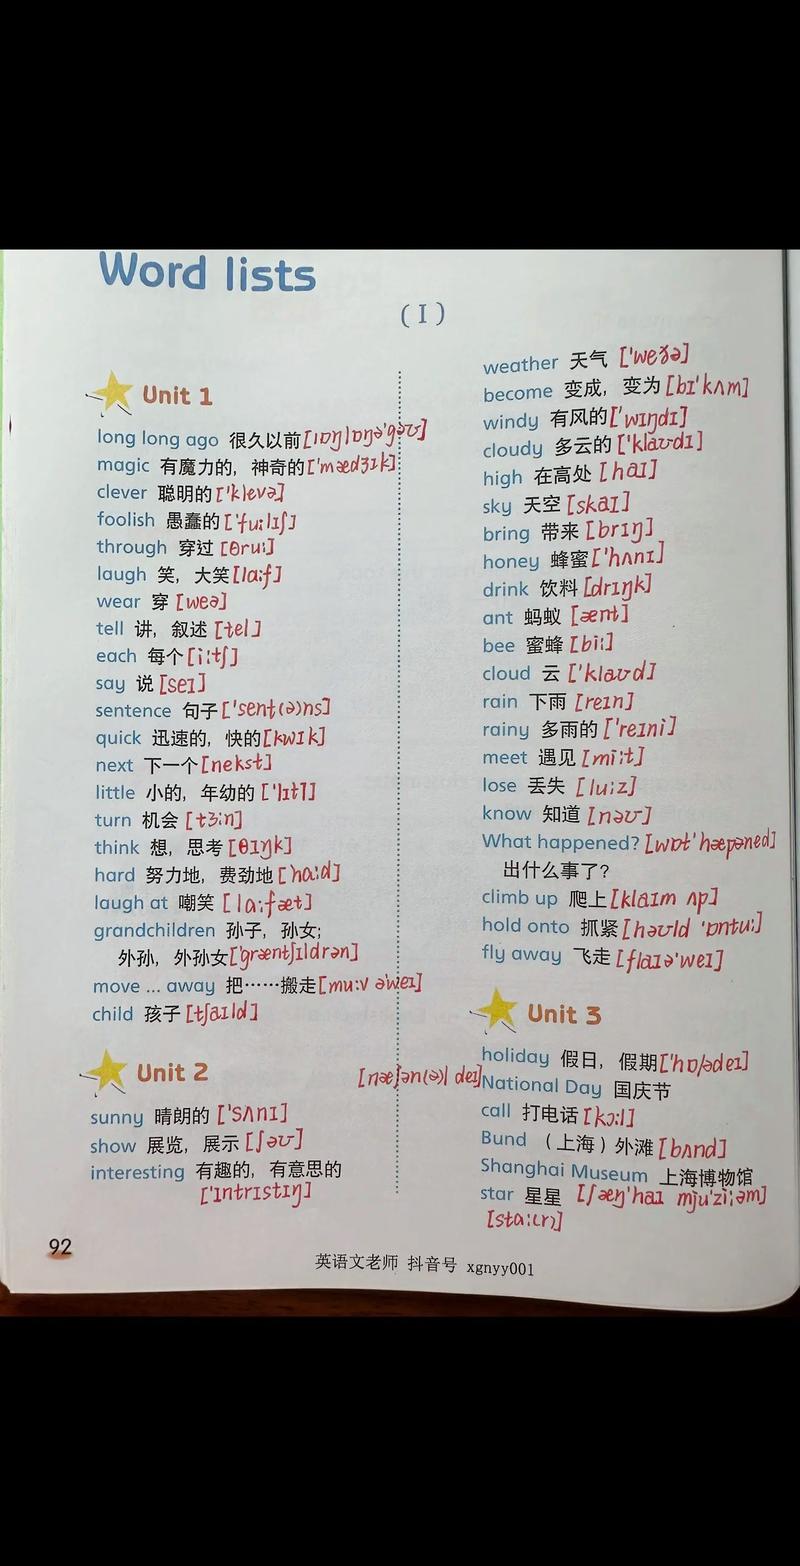 Word lists
(I)
Unit 1
long long ago 很久以前[lɒŋlɒŋə'gəʊ]
magic 有魔力的，神奇的['mædʒɪk]
clever 聪明的['klevə]
foolish 愚蠢的['fuːlɪʃ]
through 穿过[θruː]
laugh 笑，大笑[laːf]
wear 穿[weə]
tell 讲，叙述[tel]
each 每个[iːtʃ]
say 说[seɪ]
sentence 句子['sent(ə)ns]
quick 迅速的，快的[kwɪk]
next 下一个[nekst]
little 小的，年幼的['lɪtl]
turn 机会[tɜːn]
think 想，思考[θɪŋk]
hard 努力地，费劲地[haːd]
laugh at 嘲笑[laːfæt]
grandchildren 孙子，孙女；
外孙，外孙女['græntʃɪldrən]
move ... away 把……搬走[muːv ə'weɪ]
child 孩子[tʃaɪld]
Unit 2
sunny 晴朗的['sʌnɪ]
show 展览，展示[ʃəʊ]
interesting 有趣的，有意思的
['ɪntrɪstɪŋ]
weather 天气['weðə]
become 变成，变为[bɪ'kʌm]
windy 有风的['wɪŋdɪ]
cloudy 多云的['klaʊdɪ]
high 在高处[haɪ]
sky 天空[skaɪ]
bring 带来[brɪŋ]
honey 蜂蜜['hʌnɪ]
drink 饮料[drɪŋk]
ant 蚂蚁[ænt]
bee 蜜蜂[biː]
cloud 云['klaʊd]
rain 下雨[reɪn]
rainy 多雨的['reɪni]
meet 遇见[miːt]
lose 丢失[luːz]
know 知道[nəʊ]
What happened?[wɒt'hæpəned]
出什么事了？
climb up 爬上[klaɪm ʌp]
hold onto 抓紧[həʊld 'ɒntuː]
fly away 飞走[flaɪə'weɪ]
Unit 3
holiday 假日，假期['hɒlədeɪ]
[næʃən(ə)l deɪ]National Day 国庆节
call 打电话[kɔːl]
Bund （上海）外滩[bʌnd]
Shanghai Museum 上海博物馆
star 星星 [ʃæŋ'haɪ mjuˈziːəm]
[staː(r)]
92
英语文老师 抖音号 xgnyy001